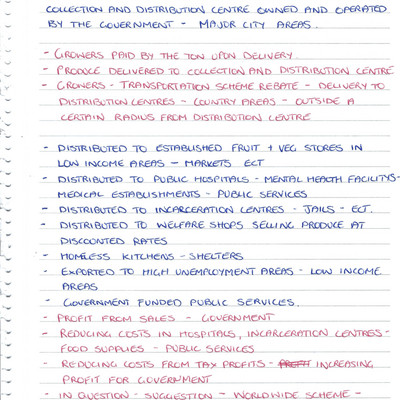 COLLECTION AND DISTRIBUTION CENTRE OWNED AND OPERATED
BY THE GOVERNMENT - MAJOR CITY AREAS.
- GROWERS PAID BY THE TON UPON DELIVERY
- PRODUCE DELIVERED TO COLLECTION AND DISTRIBUTION CENTRE
- GROWERS - TRANSPORTATION SCHEME REBATE - DELIVERY TO
DISTRIBUTION CENTRES - COUNTRY AREAS - OUTSIDE A
CERTAIN RADIUS FROM DISTRIBUTION CENTRE
- DISTRIBUTED TO ESTABLISHED FRUIT + VEG STORES IN
LOW INCOME AREAS - MARKETS ECT
- DISTRIBUTED TO PUBLIC HOSPITALS - MENTAL HEALTH FACILITYS -
MEDICAL ESTABLISHMENTS - PUBLIC SERVICES
- DISTRIBUTED TO INCARCERATION CENTRES - JAILS - ECT.
- DISTRIBUTED TO WELFARE SHOPS SELLING PRODUCE AT
DISCOUNTED RATES
- HOMLESS KITCHENS - SHELTERS
- EXPORTED TO HIGH UNEMPLOYMENT AREAS - LOW INCOME
AREAS
- GOVERNMENT FUNDED PUBLIC SERVICES.
- PROFIT FROM SALES - GOVERNMENT
- REDUCING COSTS IN HOSPITALS, INCARCERATION CENTRES -
FOOD SUPPLIES - PUBLIC SERVICES
- REDUCING COSTS FROM TAX PROFITS - INCREASING
PROFIT FOR GOVERNMENT
- IN QUESTION - SUGGESTION - WORLDWIDE SCHEME -